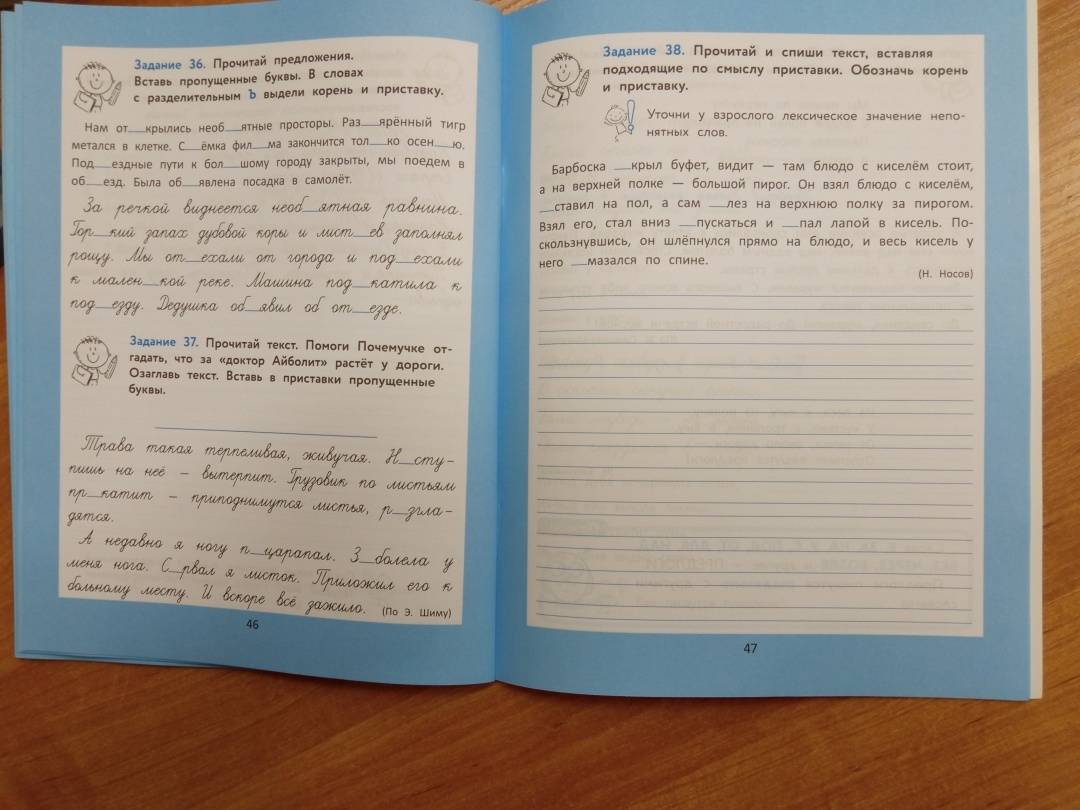 Задание 36. Прочитай предложения.
Вставь пропущенные буквы. В словах
с разделительным Ъ выдели корень и приставку.
Нам от__крылись необ__ятные просторы. Раз__ярённый тигр
метался в клетке. С__ёмка фил__ма закончится тол__ко осен__ю.
Под__ездные пути к бол__шому городу закрыты, мы поедем в
об__езд. Была об__явлена посадка в самолёт.
За речкой виднеется необ__ятная равнина.
Гор__кий запах дубовой коры и лист__ев заполнял
рощу. Мы от__ехали от города и под__ехали
к мален__кой реке. Машина под__катила к
под__езду. Дедушка об__явил об от__езде.
Задание 37. Прочитай текст. Помоги Почемучке от-
гадать, что за «доктор Айболит» растёт у дороги.
Озаглавь текст. Вставь в приставки пропущенные
буквы.
Трава такая терпеливая, живучая. Н__сту-
пишь на неё – вытерпит. Грузовик по листьям
пр__катит – приподнимутся листья, р__згла-
дятся.
А недавно я ногу п__царапал. З__болела у
меня нога. С__рвал я листок. Приложил его к
больному месту. И вскоре всё зажило. (По Э. Шиму)
46
Задание 38. Прочитай и спиши текст, вставляя
подходящие по смыслу приставки. Обозначь корень
и приставку.
Уточни у взрослого лексическое значение непо-
нятных слов.
Барбоска __крыл буфет, видит — там блюдо с киселём стоит,
а на верхней полке — большой пирог. Он взял блюдо с киселём,
__ставил на пол, а сам __лез на верхнюю полку за пирогом.
Взял его, стал вниз __пускаться и __пал лапой в кисель. По-
скользнувшись, он шлёпнулся прямо на блюдо, и весь кисель у
него __мазался по спине.
(Н. Носов)
47